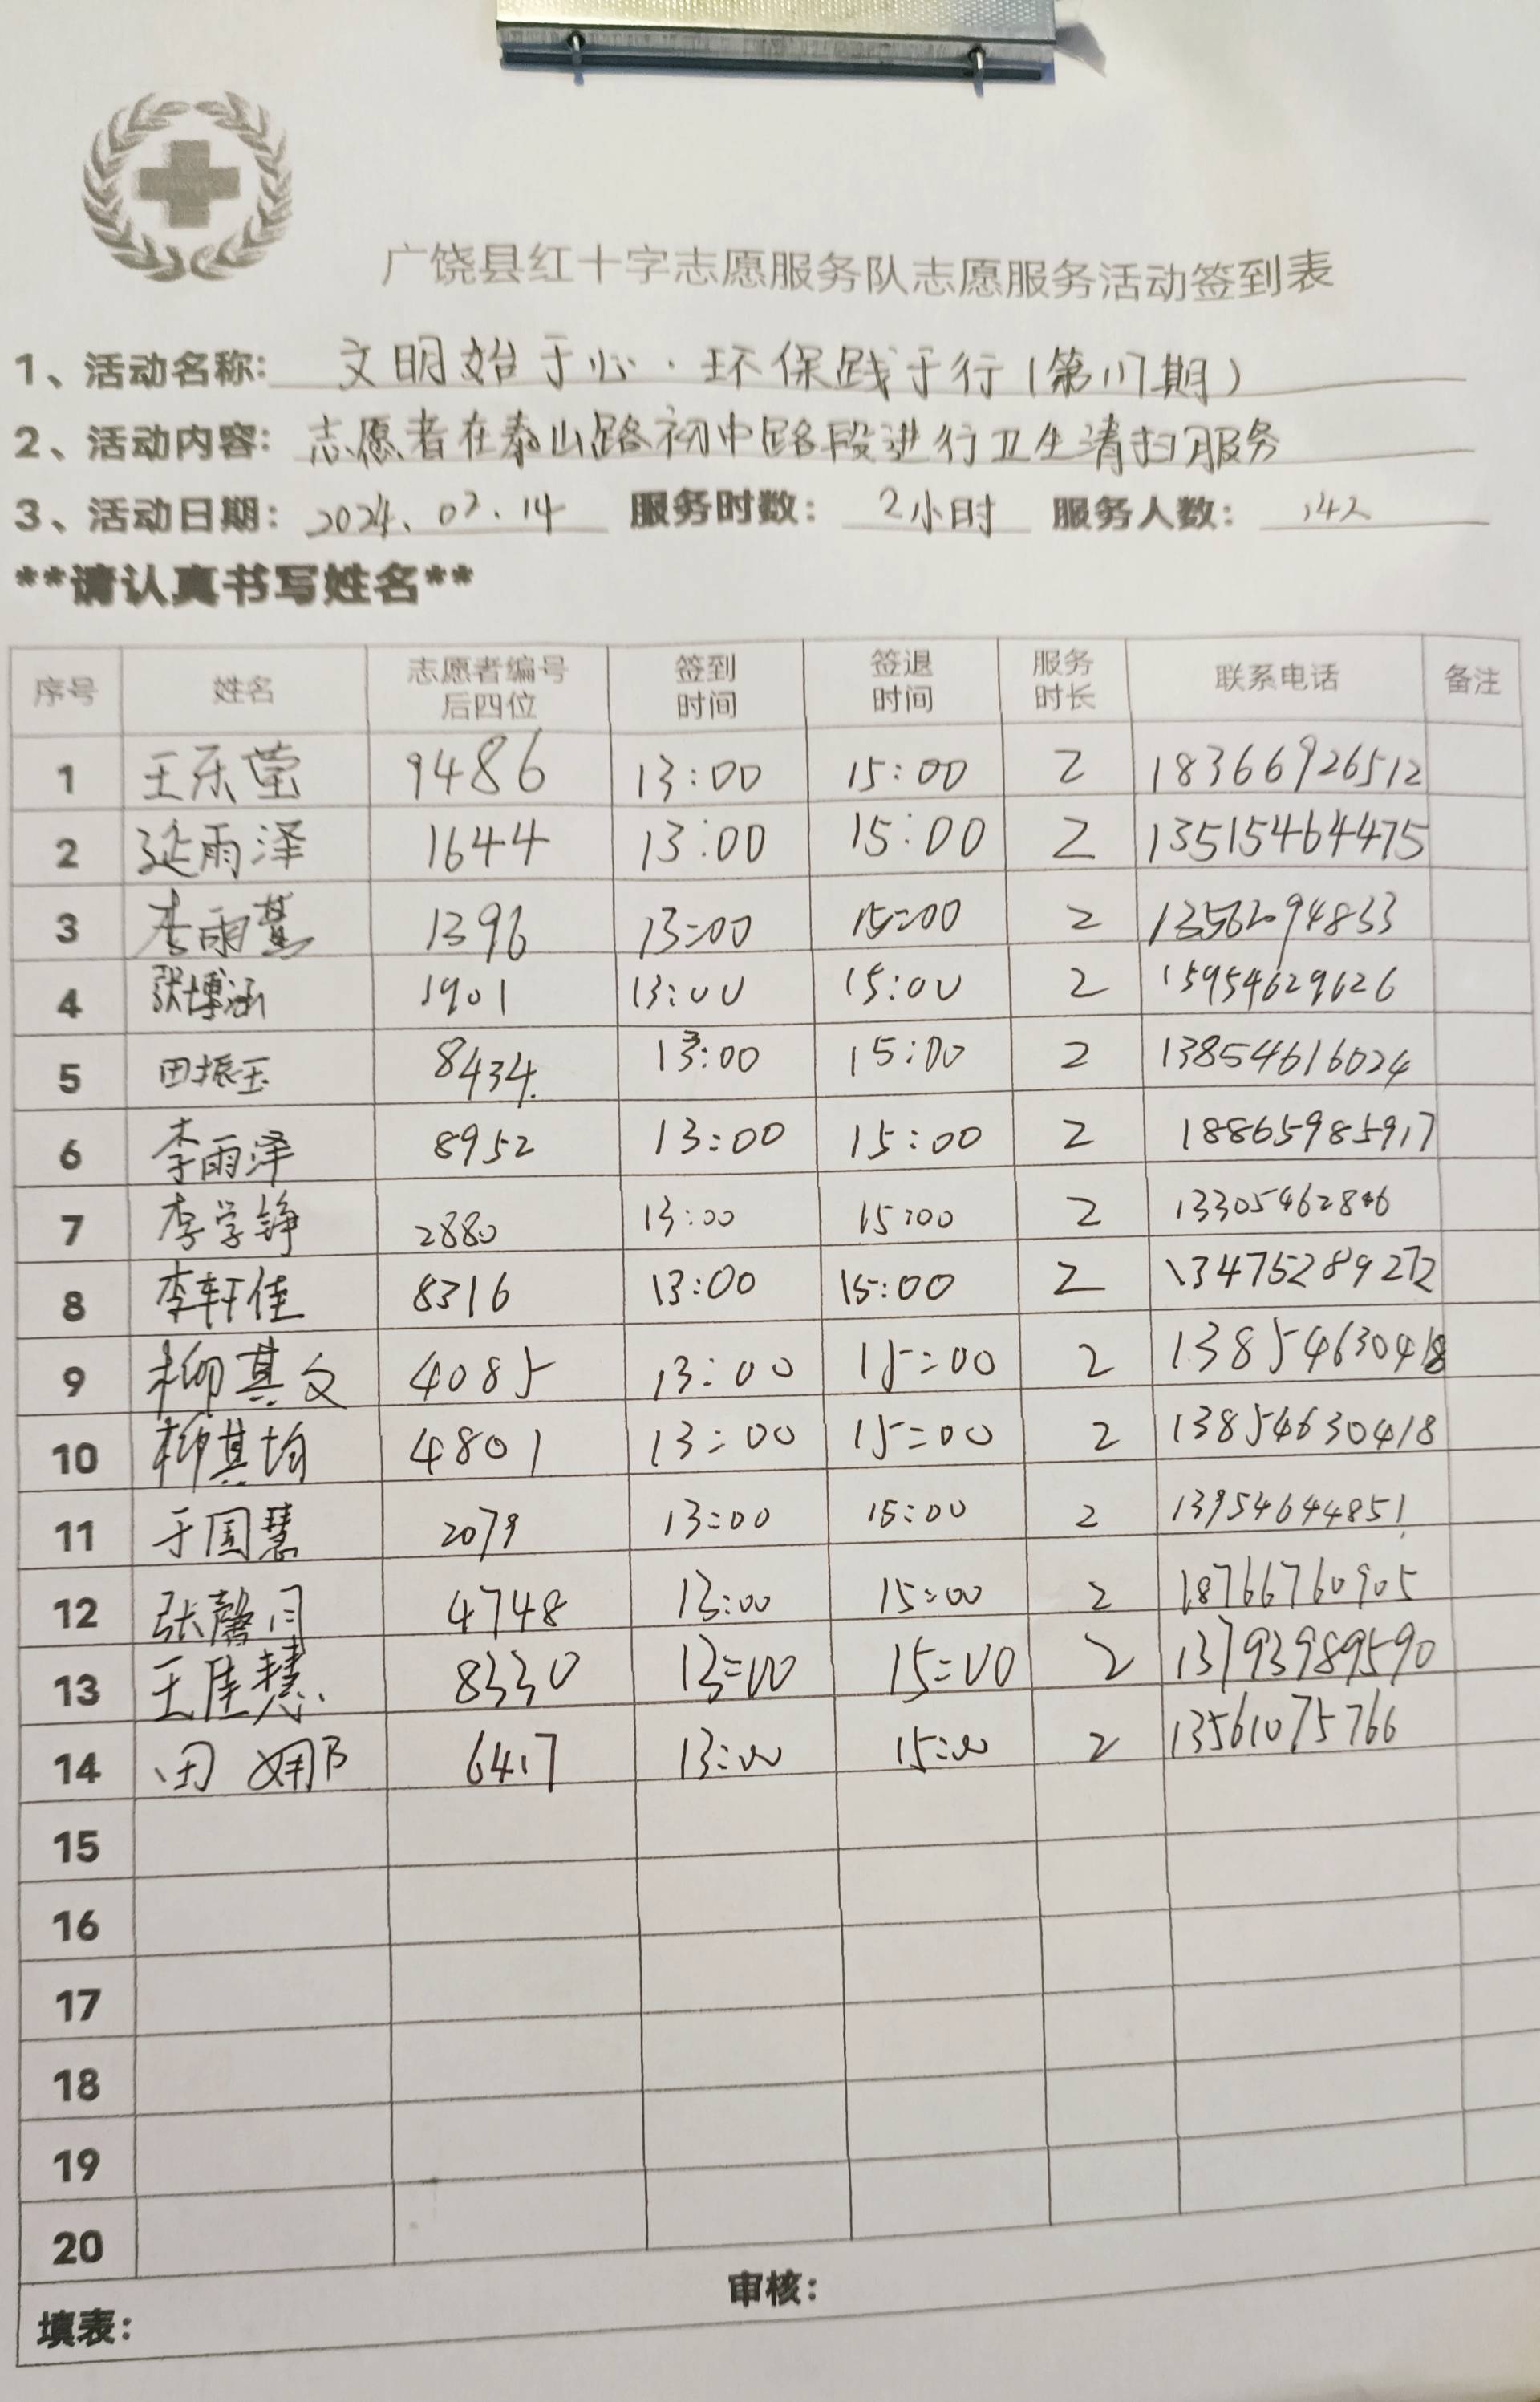 广饶县红十字志愿服务队志愿服务活动签到表
1、活动名称: 文明始于心·环保践于行(第117期)
2、活动内容: 志愿者在泰山路初中路段进行卫生清扫服务
3、活动日期: 2024.02.14 服务时数: 2小时 服务人数: 14人
**请认真书写姓名**
序号 姓名 志愿者编号后四位 签到时间 签退时间 服务时长 联系电话 备注
1 王乐莹 9486 13:00 15:00 2 18366926512
2 延雨泽 1644 13:00 15:00 2 13515464475
3 李雨 1396 13:00 15:00 2 13562094833
4 张博涵 1901 13:00 15:00 2 15954629626
5 田振玉 8434 13:00 15:00 2 13854616024
6 李雨泽 8952 13:00 15:00 2 18865985917
7 李学铮 2880 13:00 15:00 2
8 李轩佳 8316 13:00 15:00 2 13475289272
9 柳其文 4085 13:00 15:00 2 13854630418
10 柳其均 4801 13:00 15:00 2 13854630418
11 于国慧 2079 13:00 15:00 2 13954644851
12 张馨月 4748 13:00 15:00 2 18766760905
13 王佳慧 8330 13:00 15:00 2 13793989590
14 田娜 6417 13:00 15:00 2 13561075766
15
16
17
18
19
20
填表: 审核: